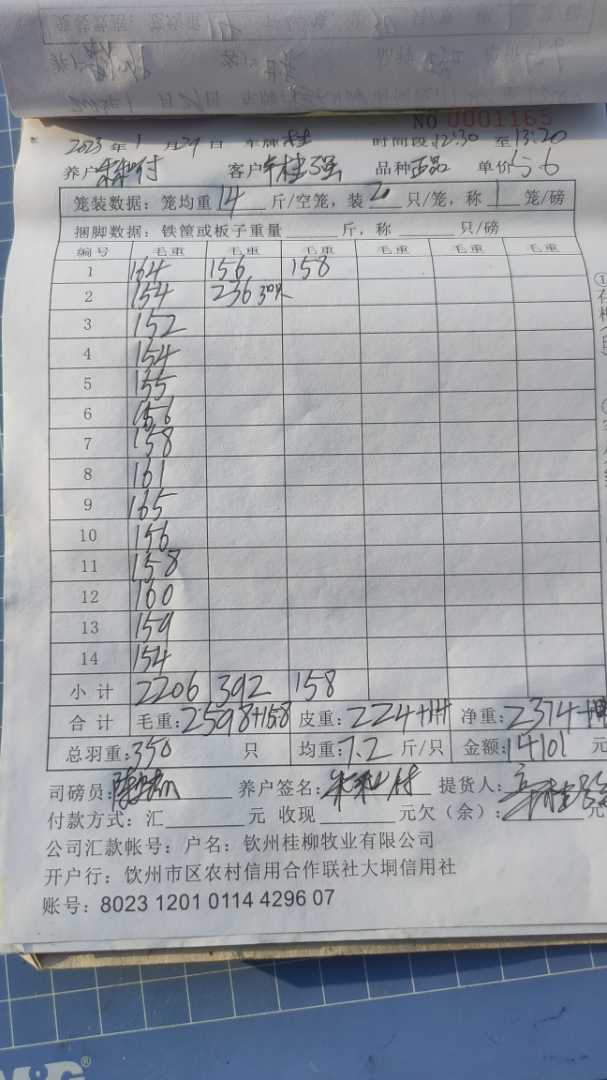 NO 0001165
2023 年 1 月 29 日 车牌 桂 时间段 12:30 至 13:20
养户 付 客户 桂强 品种 正品 单价 5.6
笼装数据：笼均重 14 斤/空笼，装 20 只/笼，称 1 笼/磅
捆脚数据：铁筐或板子重量 斤，称 只/磅
编号 毛重 毛重 毛重 毛重 毛重 毛重
1 164 156 158
2 154 236 30只
3 152
4 154
5 155
6 156
7 158
8 161
9 165
10 156
11 158
12 160
13 159
14 154
小计 2206 392 158
合计 毛重：2598+158 皮重：224+14 净重：2374+
总羽重：350 只 均重：7.2 斤/只 金额：14101 元
司磅员： 养户签名： 付 提货人：
付款方式：汇 元 收现 元欠（余）： 元
公司汇款帐号：户名：钦州桂柳牧业有限公司
开户行：钦州市区农村信用合作联社大垌信用社
账号：8023 1201 0114 4296 07
M&G